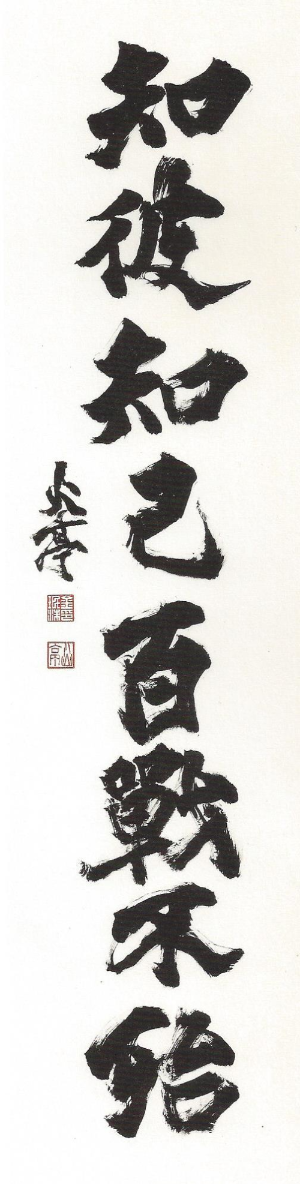 知彼知己百戰不殆
亭